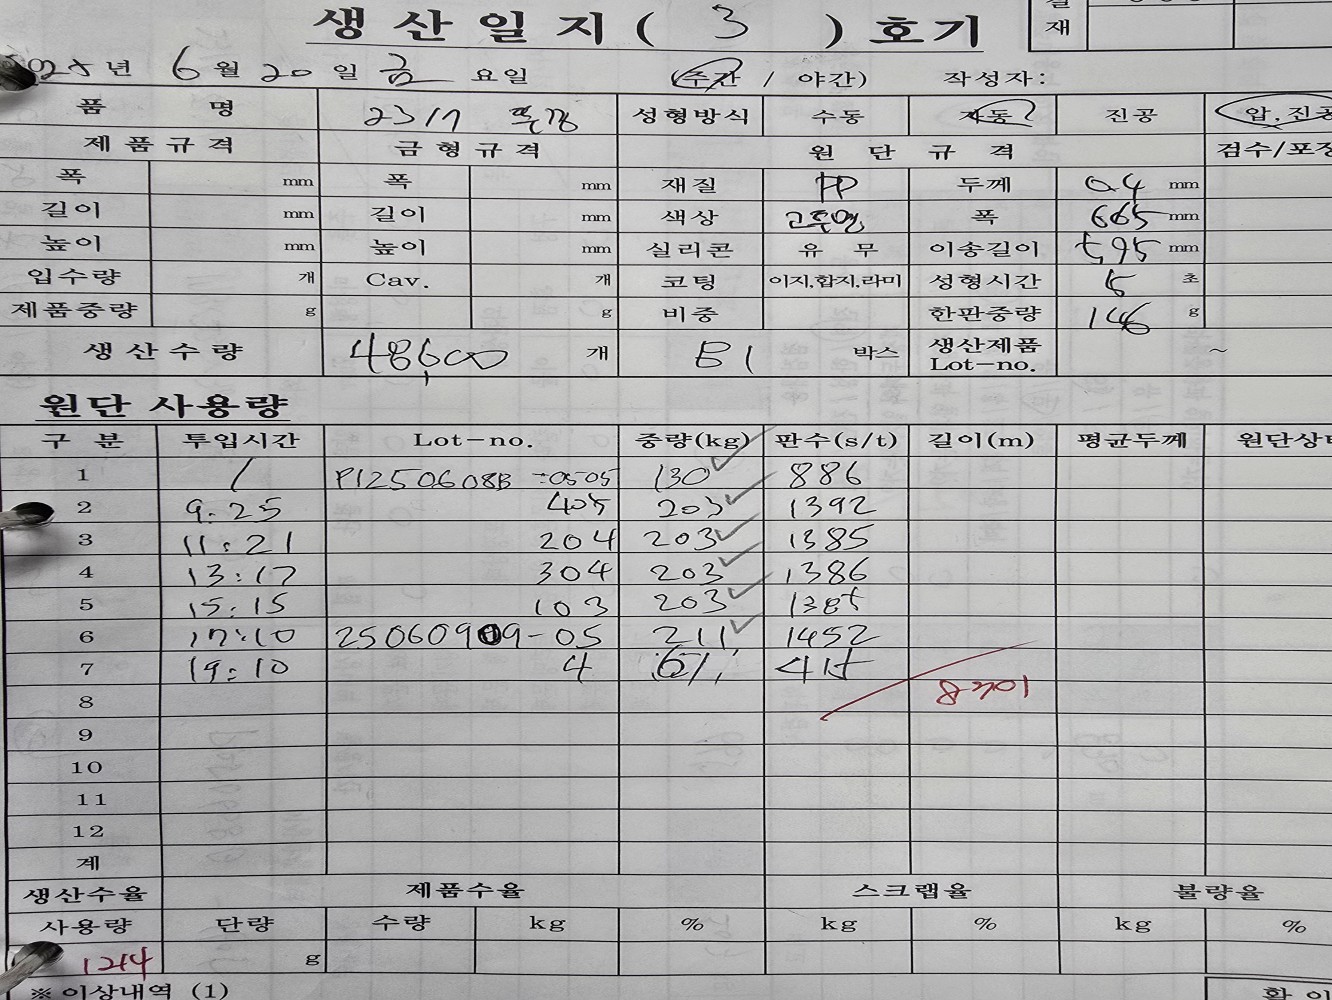 생산일지( 3 )호기
재
2025년 6월 20일 금요일 (주간 / 야간) 작성자:
품 명 2317 성형방식 수동 자동 진공 압.진공
제품규격 금형규격 원단규격 검수/포장
폭 mm 폭 mm 재질 PP 두께 0.4 mm
길이 mm 길이 mm 색상 폭 665 mm
높이 mm 높이 mm 실리콘 유 무 이송길이 595 mm
입수량 개 Cav. 개 코팅 이지.합지.라미 성형시간 5 초
제품중량 g g 비중 한판중량 146 g
생산수량 48,600 개 81 박스 생산제품 Lot-no. ~
원단 사용량
구 분 투입시간 Lot-no. 중량(kg) 판수(s/t) 길이(m) 평균두께 원단상태
1 / P1250608B -0505 130 886
2 9:25 405 203 1392
3 11:21 204 203 1385
4 13:17 304 203 1386
5 15:15 103 203 1385
6 17:10 25060909-05 211 1452
7 19:10 4 61 415
8 8301
9
10
11
12
계
생산수율 제품수율 스크랩율 불량율
사용량 단량 수량 kg % kg % kg %
1214 g
※ 이상내역 (1) 확 인